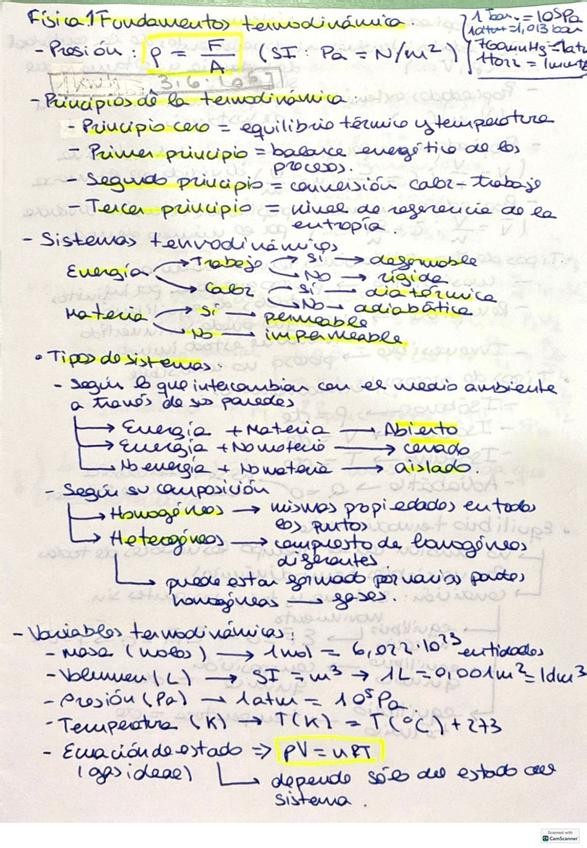 Física 1 Fundamentos termodinámica
1 bar = 10⁵ Pa
1 atm = 1,013 bar
760 mmHg = 1 atm
1 torr = 1 mmHg
- Presión : P = F/A (SI : Pa = N/m²)
- Principios de la termodinámica :
- Principio cero = equilibrio térmico y temperatura
- Primer principio = balance energético de los
procesos.
- Segundo principio = conversión calor - trabajo
- Tercer principio = nivel de referencia de la
entropía
- Sistemas termodinámicos
Energía → Trabajo → Sí → deformable
→ No → rígida
→ Calor → Sí → diatérmica
→ No → adiabática
Materia → Sí → permeable
→ No → impermeable
• Tipos de sistemas :
- Según lo que intercambian con el medio ambiente
a través de sus paredes
→ Energía + Materia → Abierto
→ Energía + No materia → cerrado
→ No energía + No materia → aislado.
- Según su composición
→ Homogéneos → mismas propiedades en todos
los puntos
→ Heterogéneos → compuesto de homogéneos
diferentes
→ puede estar formado por varias partes
homogéneas → fases.
- Variables termodinámicas :
- Masa (moles) → 1 mol = 6,022·10²³ entidades
- Volumen (L) → SI = m³ → 1L = 0,001 m³ = 1dm³
- Presión (Pa) → 1 atm = 10⁵ Pa.
- Temperatura (K) → T(K) = T(ºC) + 273
- Ecuación de estado ⇒ PV = nRT
(gas ideal) → depende sólo del estado del
sistema.
Scanned with
CamScanner